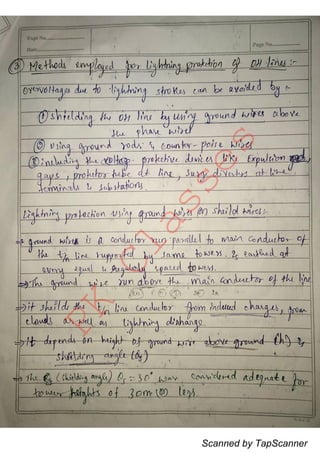 Page No.
Date
Page No.
③ Methods employed for lightning protection of OH lines :-
overvoltages due to lightning strokes can be avoided by :-
① shielding the OH line by using ground wires above
the phase wires
② using ground rods & counter-poise wires
③ including the voltage protective devices like Expulsion
gaps, protector tube at line, surge diverters at line
terminals & substations
Lightning protection using ground wires (or) sheild wires:-
⇒ ground wires is a conductor run parallel to main conductor of
the t/n line supported by same towers, & earthed at
every equal & regularly spaced towers.
⇒ The ground wire run above the main conductor of the line
⇒ it sheilds the t/n line conductor from induced charges, from
clouds as well as lightning disharge.
⇒ It depends on height of ground wire above ground (h) &
sheilding angle (θs)
⇒ The θs (shielding angle) θs = 30° was considered adequate for
tower heights of 30m (or) less.
PK Classes
Scanned by TapScanner